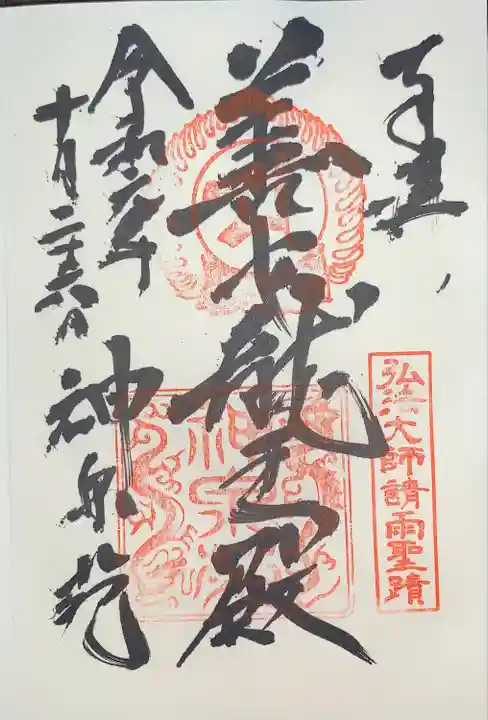 奉拝
弘法大師請雨聖蹟
善女龍王殿
令和六年
十月二十六日
神泉苑